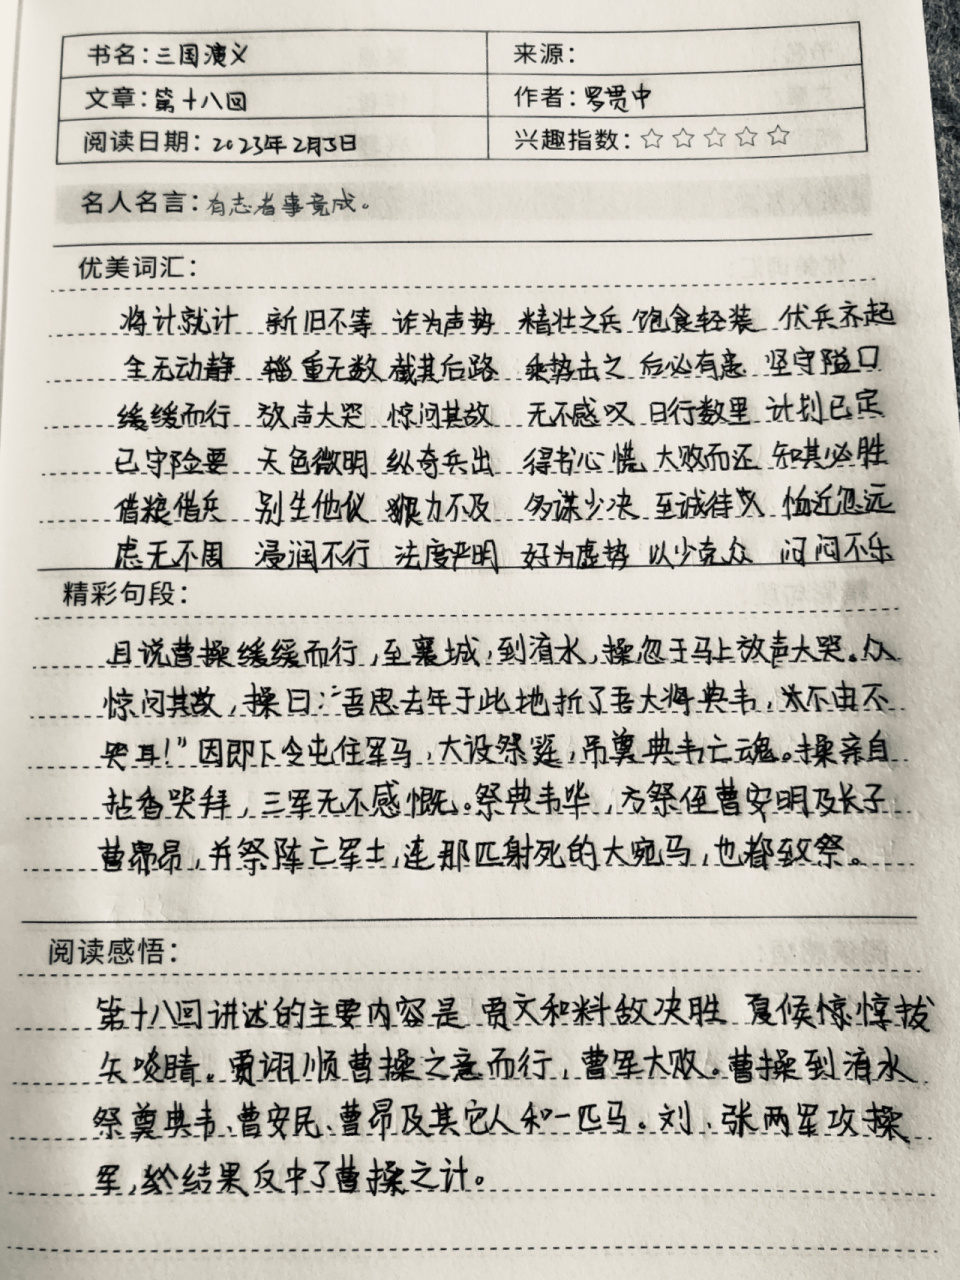 书名：三国演义 来源：
文章：第十八回 作者：罗贯中
阅读日期：2023年2月3日 兴趣指数：☆☆☆☆☆
名人名言：有志者事竟成。
优美词汇：
将计就计 新旧不等 诈为声势 精壮之兵 饱食轻装 伏兵齐起
全无动静 辎重无数 截其后路 乘势击之 后必有患 坚守隘口
缓缓而行 放声大哭 惊问其故 无不感叹 日行数里 计划已定
已守险要 天色微明 纵奇兵出 得书心慌 大败而还 知其必胜
借粮借兵 别生他仪 力不及 多谋少决 至诚待人 恤近忽远
虑无不周 浸润不行 法度严明 好为虚势 以少克众 闷闷不乐
精彩句段：
且说曹操缓缓而行，至襄城，到淯水，操忽于马上放声大哭。众
惊问其故，操曰："吾思去年于此地折了吾大将典韦，不由不
哭耳！"因即下令屯住军马，大设祭筵，吊奠典韦亡魂。操亲自
拈香哭拜，三军无不感慨。祭典韦毕，方祭侄曹安明及长子
曹昂昂，并祭阵亡军士，连那匹射死的大宛马，也都致祭。
阅读感悟：
第十八回讲述的主要内容是 贾文和料敌决胜 夏候惊惇拔
矢啖睛。贾诩顺曹操之意而行，曹军大败。曹操到淯水
祭奠典韦、曹安民、曹昂及其它人和一匹马。刘、张两军攻操
军，结果反中了曹操之计。